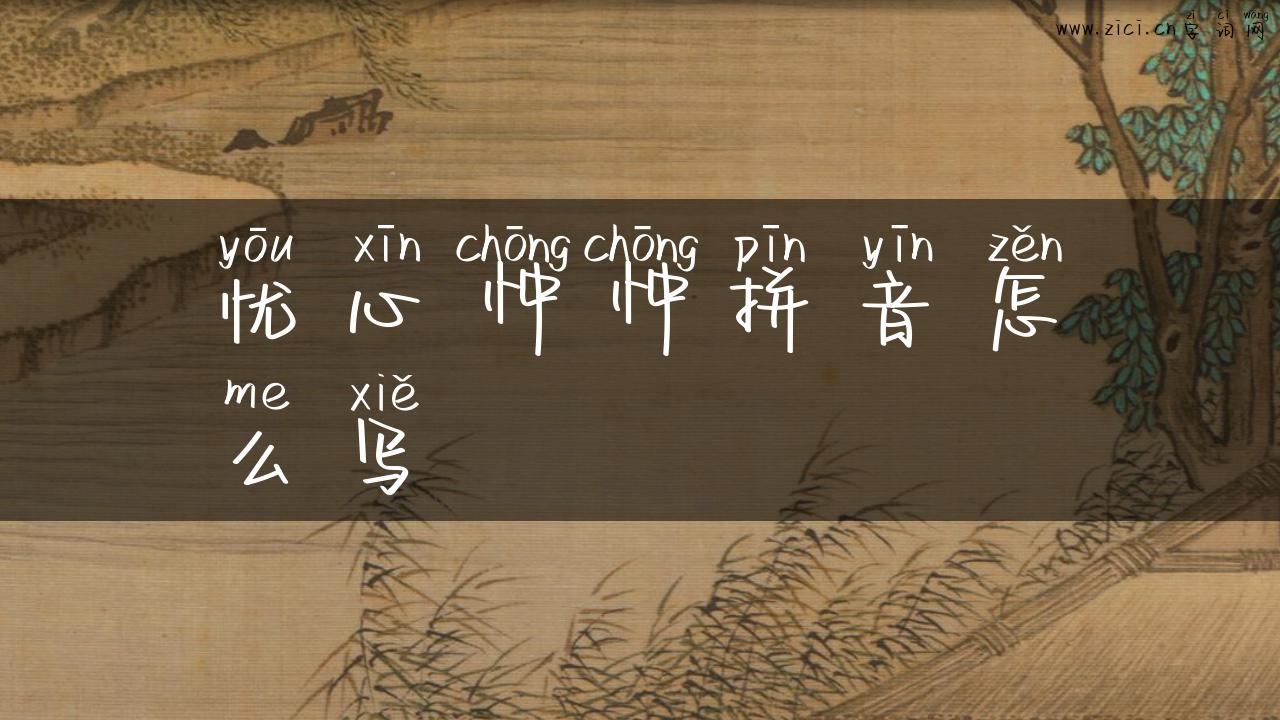 zì cí wǎng
www.zici.cn字词网
yōu xīn chōng chōng pīn yīn zěn
忧心忡忡拼音怎
me xiě
么写